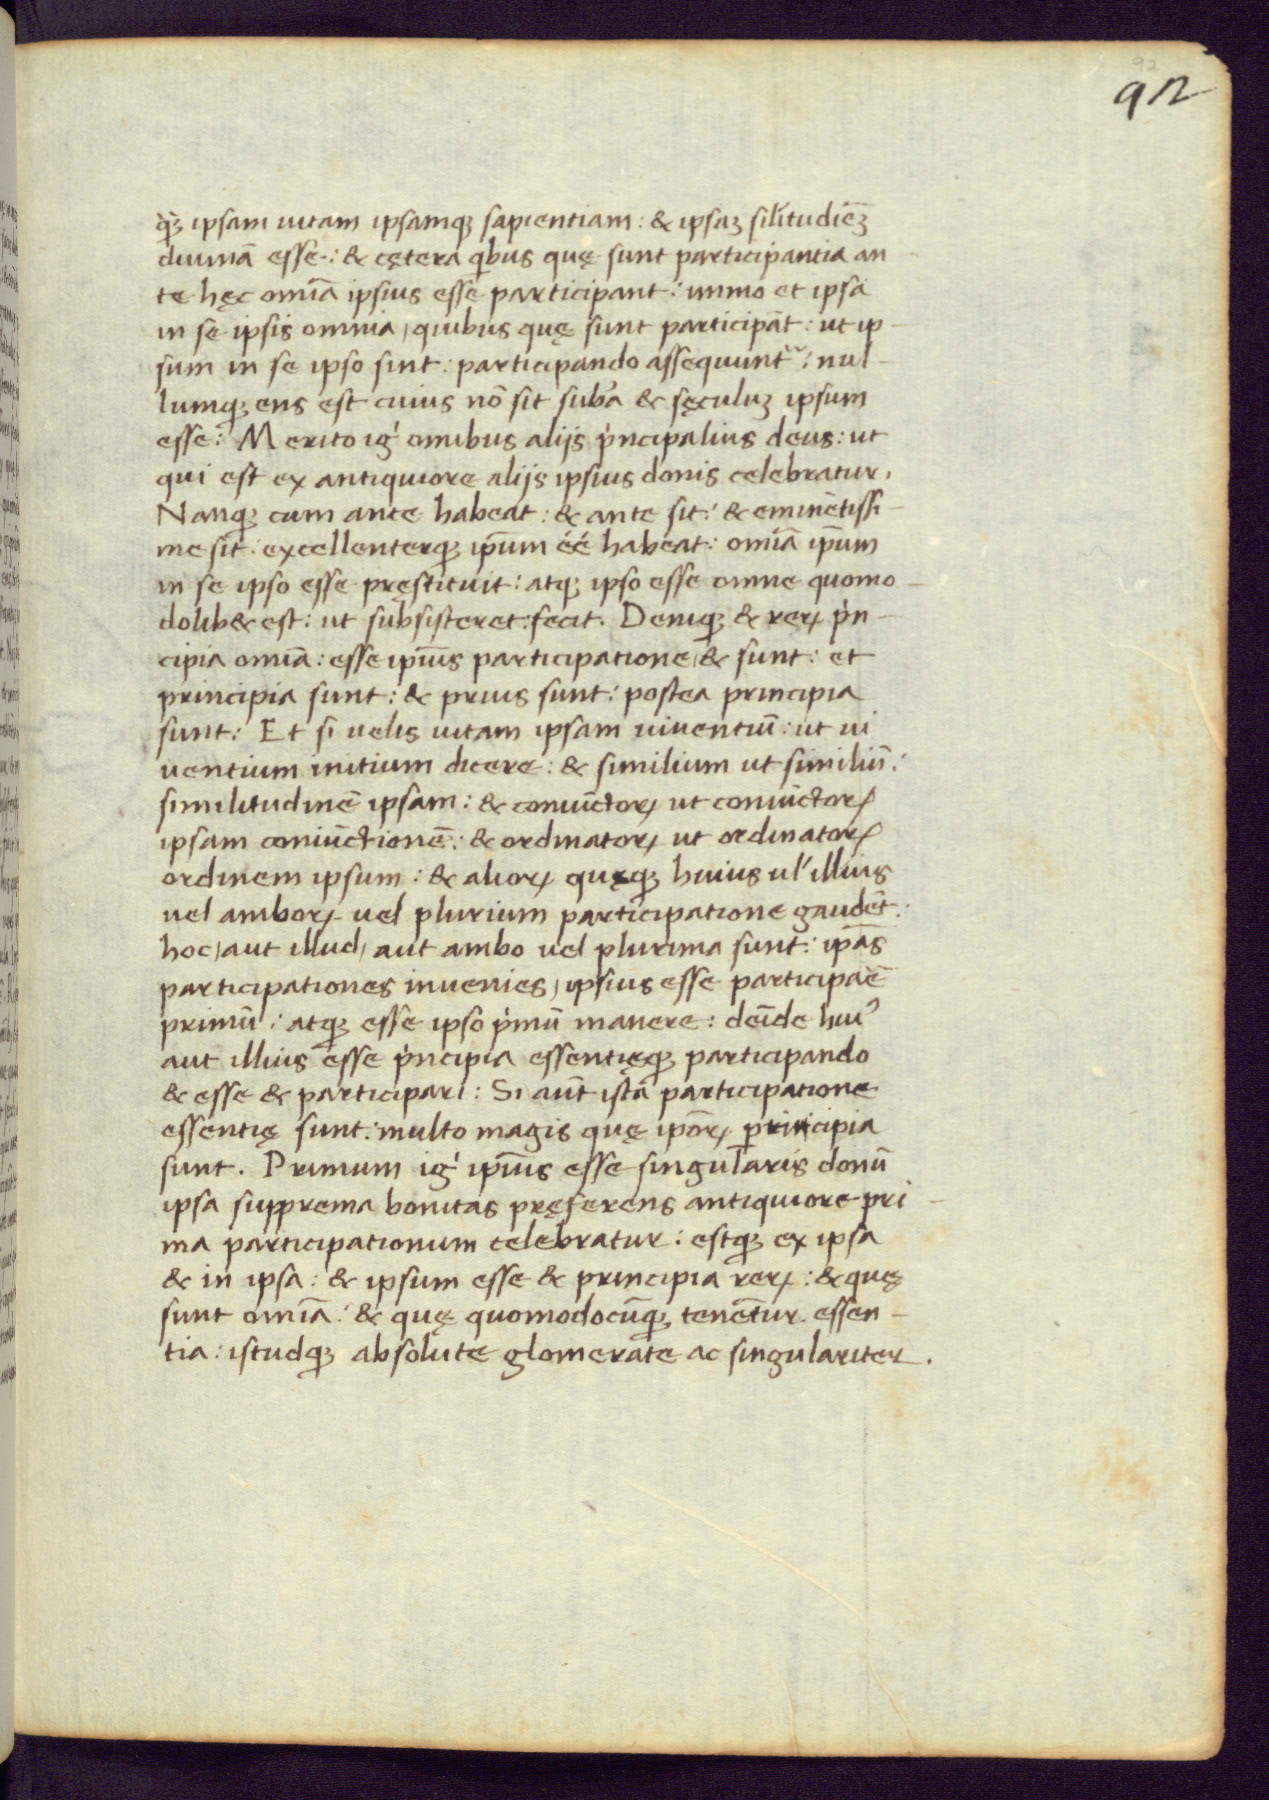 92
92
qꝫ ipsam uitam ipsamqꝫ sapientiam: & ipsaꝫ sil̓itudiēꝫ
diuinā esse: & cętera qi̇bus quę sunt participantia an
te hęc omīa ipsius esse participant: immo et ipsā
in se ipsis omnia, quibus quę sunt participāt: ut ip-
sum in se ipso sint: participando assequunt᷑: nul-
lumqꝫ ens est cuius nō sit suba̓ & sęculuꝫ ipsum
esse: Merito ig̓ omibus alijs p̓ncipalius deus: ut
qui est ex antiquiore alijs ipsius donis celebratur,
Nanqꝫ cum ante habeat: & ante sit: & eminētissi-
me sit: excellenterqꝫ ip̄um éé habeat: omīa ip̄um
in se ipso esse pręstituit: atqꝫ ipso esse omne quomo-
dolib& est: ut subsisteret: fecit. Deniqꝫ & reꝝ p̓n-
cipia omīa: esse ip̄ius participatione, & sunt: et
principia sunt: & prius sunt: postea principia
sunt: Et si uelis uitam ipsam uiuentiū: ut ui
uentium initium dicere: & similium ut similiū:
similitudinē ipsam: & coniūctoꝝ ut coniūctoꝝ
ipsam coniūctionē: & ordinatoꝝ ut ordinatoꝝ
ordinem ipsum: & alioꝝ quęqꝫ huius ul̓ illius
uel amboꝝ uel plurium participatione gaudēt:
hoc, aut illud, aut ambo uel plurima sunt: ip̄as
participationes inuenies, ipsius esse participaē
primū: atqꝫ esse ipso p̓mū manere: deīde huiꝰ
aut illius esse p̓ncipia essentięqꝫ participando
& esse & participari: Si aūt istā participatione
essentię sunt: multo magis quę ip̄oꝝ principia
sunt. Primum ig̓ ip̄ius esse singularis donū
ipsa supprema bonitas pręferens antiquiore pri-
ma participationum celebratur: estqꝫ ex ipsa
& in ipsa: & ipsum esse & principia reꝝ: & quę
sunt omīa: & quę quomodocūqꝫ tenētur essen-
tia: istudqꝫ absolute glomerate ac singulariter.